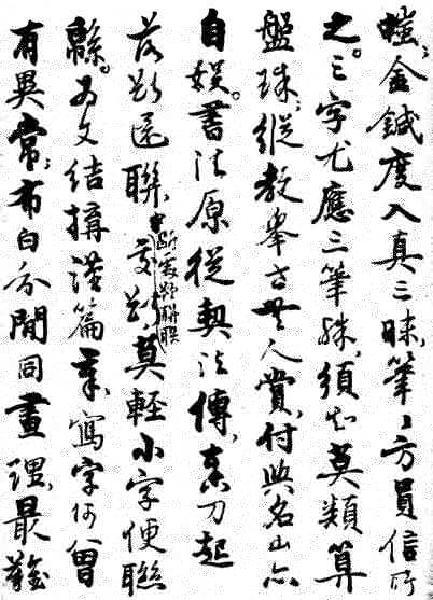 嗤;金鍼度入真三昧,筆〻方員信所
之。三字尤應三筆殊,須知莫類算
盤珠;縱教舉世無人賞,付與名山亦
自娛。書法原從契法傳,奏刀起
落斷還聯,莫輕小字便聯
緜。為文結搆謹篇章,寫字何曾
有異常;布白分間同畫理,最難